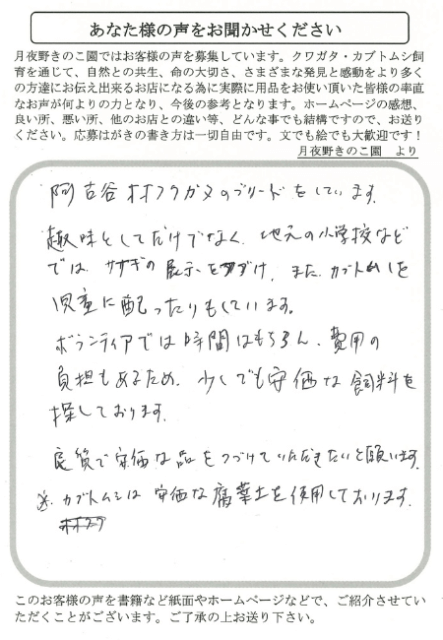 あなた様の声をお聞かせください
月夜野きのこ園ではお客様の声を募集しています。クワガタ・カブトムシ飼
育を通じて、自然との共生、命の大切さ、さまざまな発見と感動をより多く
の方達にお伝え出来るお店になる為に実際に用品をお使い頂いた皆様の率直
なお声が何よりの力となり、今後の参考となります。ホームページの感想、
良い所、悪い所、他のお店との違い等、どんな事でも結構ですので、お送り
ください。応募はがきの書き方は一切自由です。文でも絵でも大歓迎です！
月夜野きのこ園　より
阿古谷オオクワガタのブリードをしています。
趣味としてだけでなく、地元の小学校など
では の展示を け、また、カブトムシを
児童に配ったりもしています。
ボランティアでは時間はもちろん、費用の
負担もあるため、少しでも安価な飼料を
探しております。
良質で安価な品をつづけていただきたいと願います。
※カブトムシは安価な腐葉土を使用しております。
このお客様の声を書籍など紙面やホームページなどで、ご紹介させてい
ただくことがございます。ご了承の上お送り下さい。